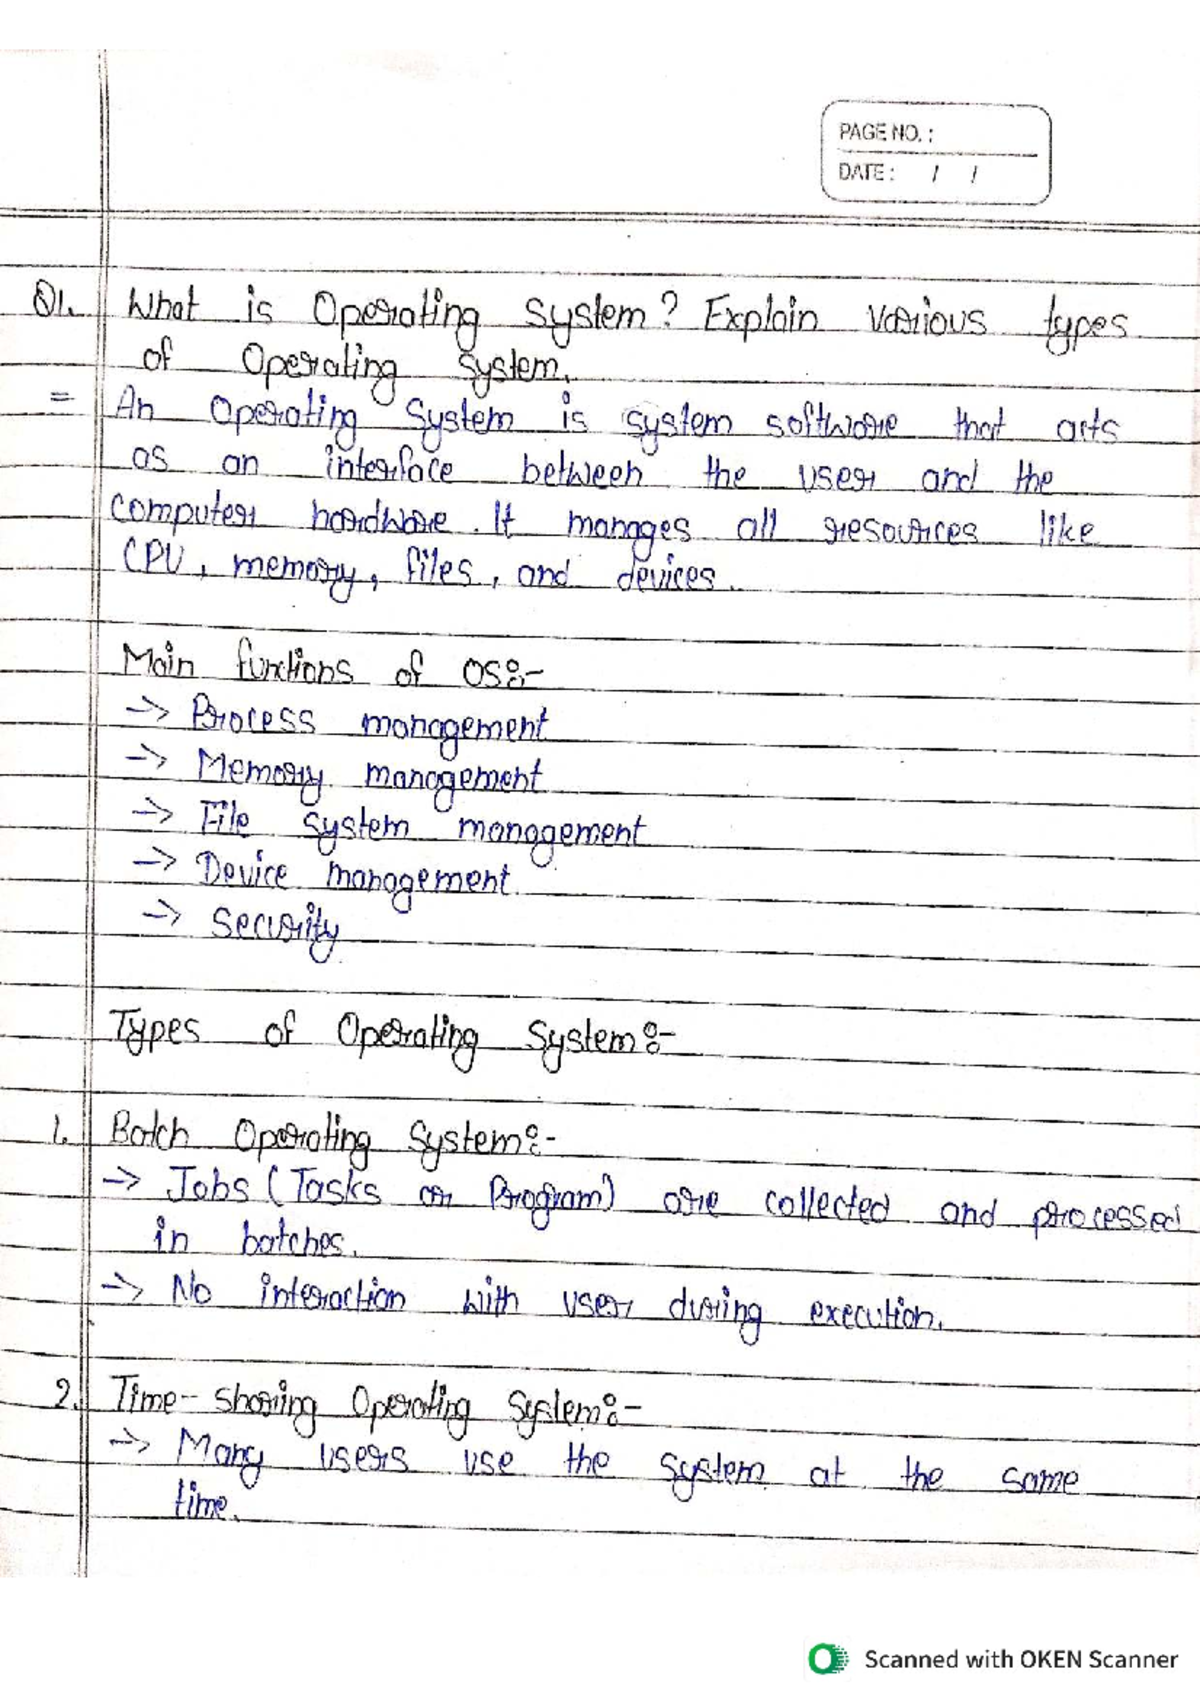 PAGE NO. :
DATE : / /
Q1. What is Operating System? Explain various types
of Operating System.
= An Operating System is system software that acts
as an interface between the user and the
computer hardware. It manages all resources like
CPU, memory, files, and devices.
Main functions of OS:-
-> Process management
-> Memory management
-> File system management
-> Device management
-> Security
Types of Operating System:-
1. Batch Operating System:-
-> Jobs (Tasks or Program) are collected and processed
in batches.
-> No interaction with user during execution.
2. Time-sharing Operating System:-
-> Many users use the system at the same
time.
Scanned with OKEN Scanner